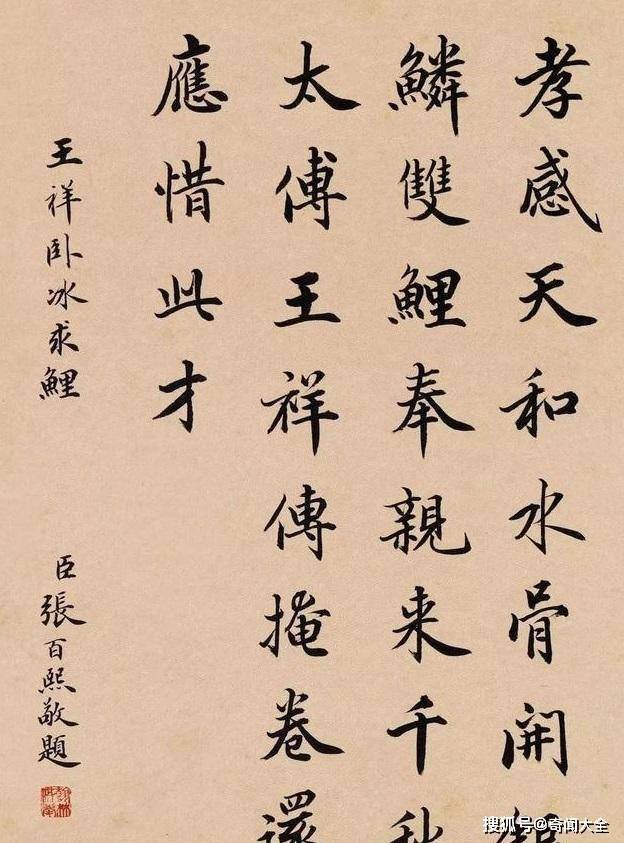 孝感天和水骨開銀
鱗雙鯉奉親来千秋
太傅王祥傳掩卷還
應惜此才
王祥卧冰求鯉
臣張百熙敬題
搜狐号@奇闻大全